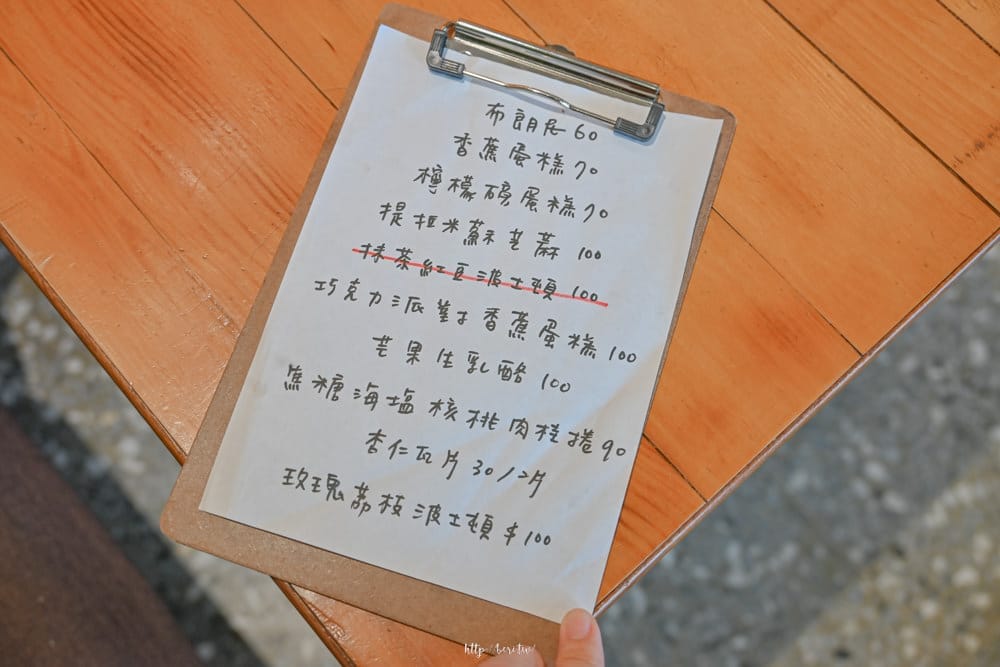 布朗尼 60
香蕉蛋糕 70
檸檬磅蛋糕 70
提拉米蘇芝麻 100
抹茶紅豆波士頓 100
巧克力派對香蕉蛋糕 100
芒果生乳酪 100
焦糖海塩核桃肉桂捲 90
杏仁瓦片 30/2片
玫瑰荔枝波士頓 $100